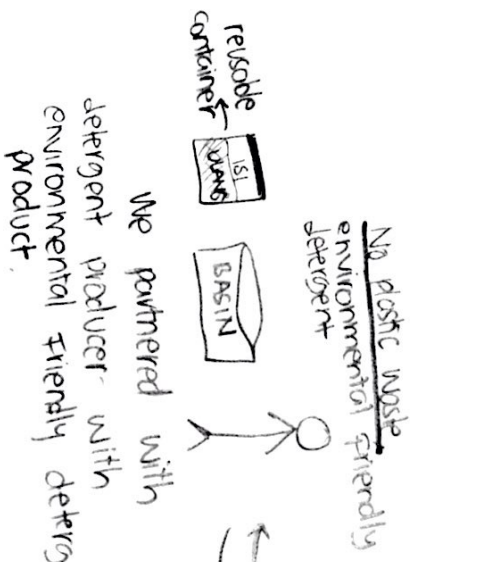 No plastic waste
environmental friendly
detergent
reusable
container
ISI
ULANG
BASIN
We partnered with
detergent producer with
environmental friendly deterg
product.